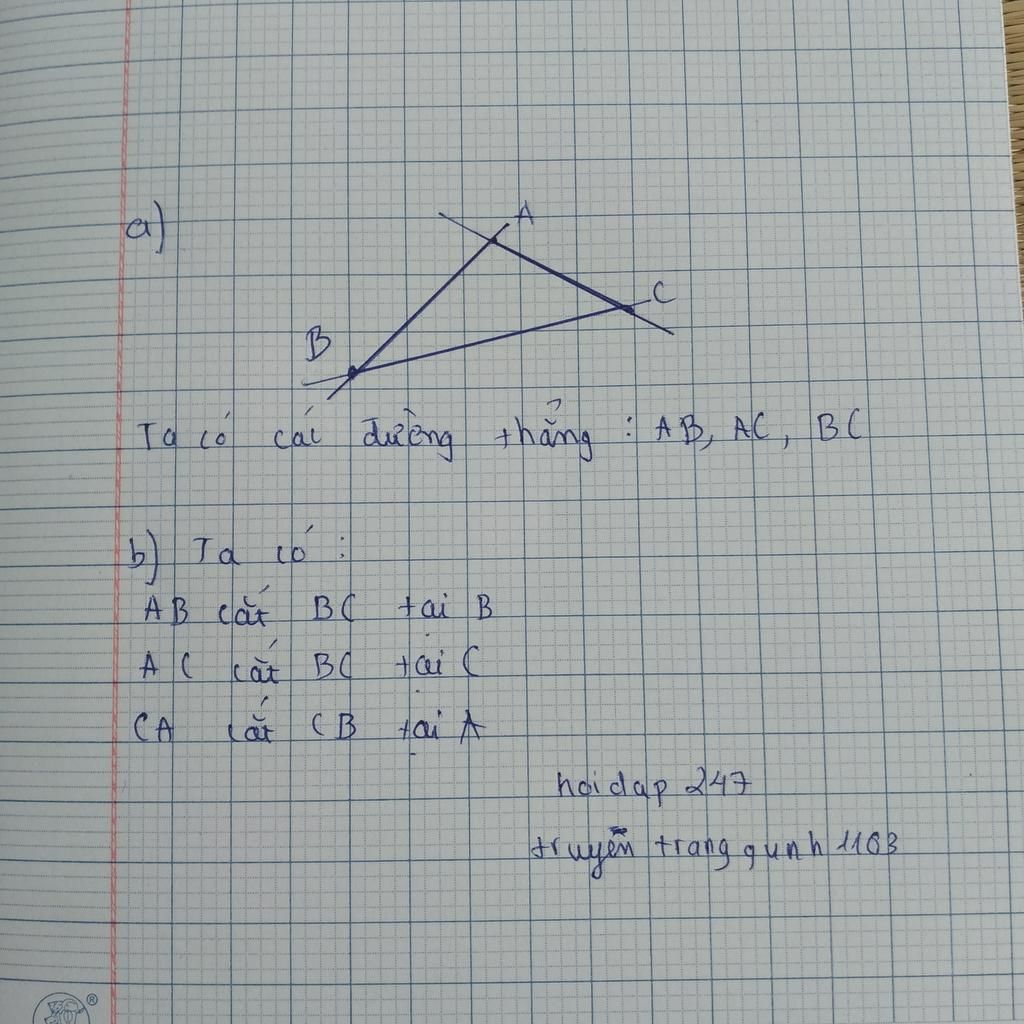 a)
A
C
B
Ta có các đường thẳng : AB, AC, BC
b) Ta có :
AB cắt BC tại B
AC cắt BC tại C
CA cắt CB tại A
hoidap 247
truyễn trang qunh 1103